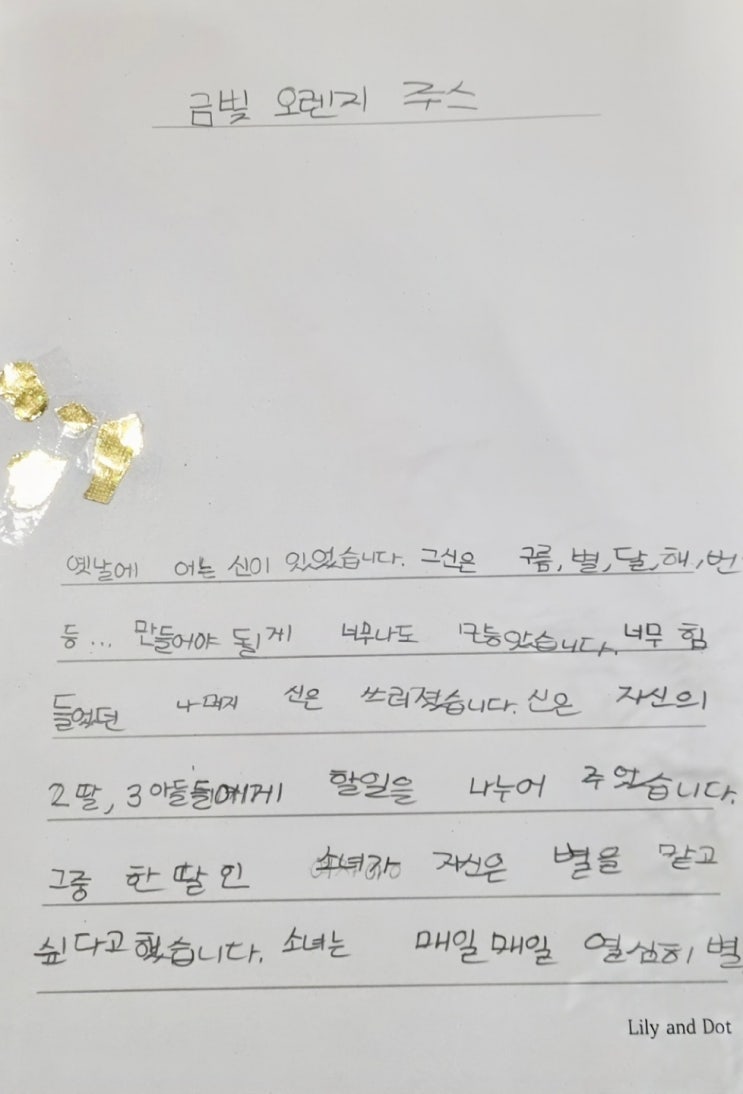 금빛 오렌지 주스
옛날에 어느 신이 있었습니다. 그신은 구름, 별, 달, 해, 번
등... 만들어야 될게 너무나도 많았습니다. 너무 힘
들었던 나머지 신은 쓰러졌습니다. 신은 자신의
2딸, 3아들들에게 할일을 나누어 주었습니다.
그중 한 딸인 자신은 별을 맡고
싶다고 했습니다. 소녀는 매일매일 열심히 별
Lily and Dot